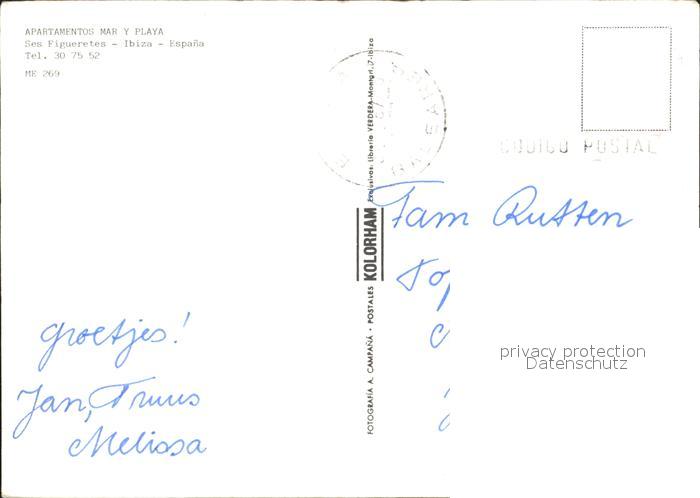 APARTAMENTOS MAR Y PLAYA
Ses Figueretes - Ibiza - España
Tel. 30 75 52
ME 269
groetjes!
Jan, Truus
Melissa
FOTOGRAFIA A. CAMPAÑA - POSTALES KOLORHAM Exclusivas: Librería VERDERA-Montgrí, 7-Ibiza
CODIGO POSTAL
Fam Rutten
privacy protection
Datenschutz